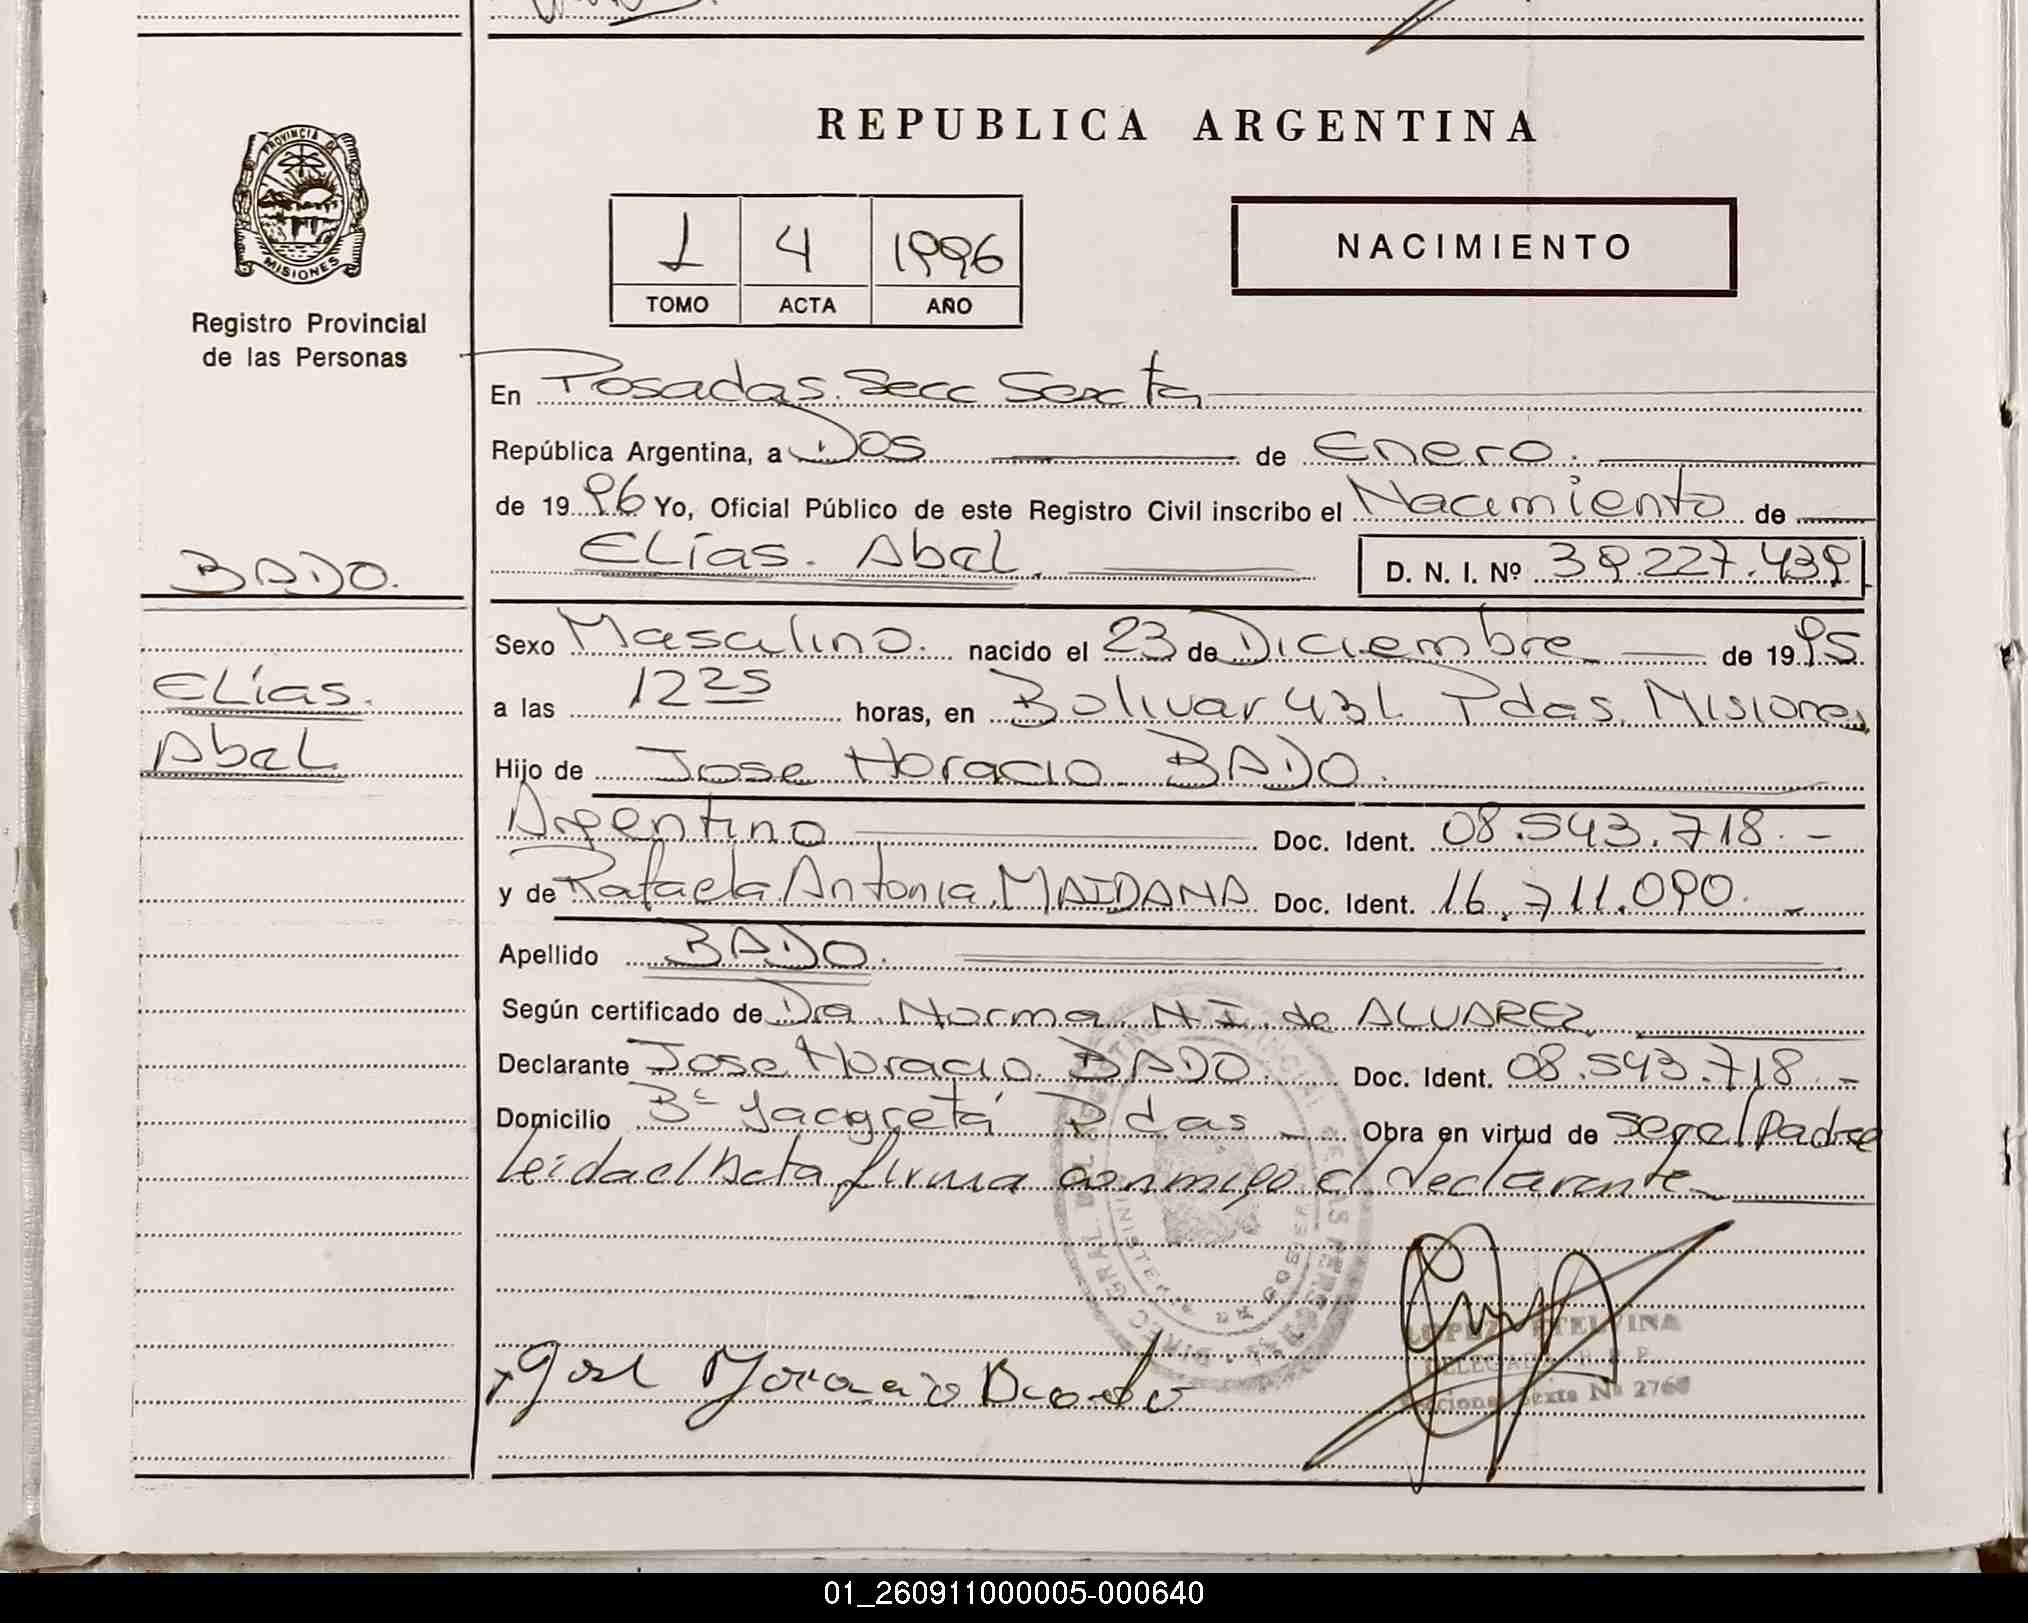 PROVINCIA DE
MISIONES
Registro Provincial
de las Personas
BADO.
ELías.
Abel
REPUBLICA ARGENTINA
1 4 1996
TOMO ACTA AÑO
NACIMIENTO
En Posadas. Secc Sexta
República Argentina, a Dos de Enero.
de 1996 Yo, Oficial Público de este Registro Civil inscribo el Nacimiento de
ELías. Abel. D. N. I. Nº 39.227.439
Sexo Masculino. nacido el 23 de Diciembre de 1995
a las 12 25 horas, en Bolivar 431. Pdas. Misiones
Hijo de Jose Horacio BADO.
Argentino Doc. Ident. 08.543.718.-
y de Rafaela Antonia MAIDANA Doc. Ident. 16.711.090.-
Apellido BADO.
Según certificado de Dra. Norma N.I. de ALVAREZ
Declarante Jose Horacio BADO. Doc. Ident. 08.543.718-
Domicilio Bº Yacyretá Pdas - Obra en virtud de ser el Padre
leida el Acta firma conmigo el declarante-
LOPEZ ETELVINA
DELEGADA R. P. P.
Seccional Sexta Nº 2768
José Horacio Bado
01_260911000005-000640